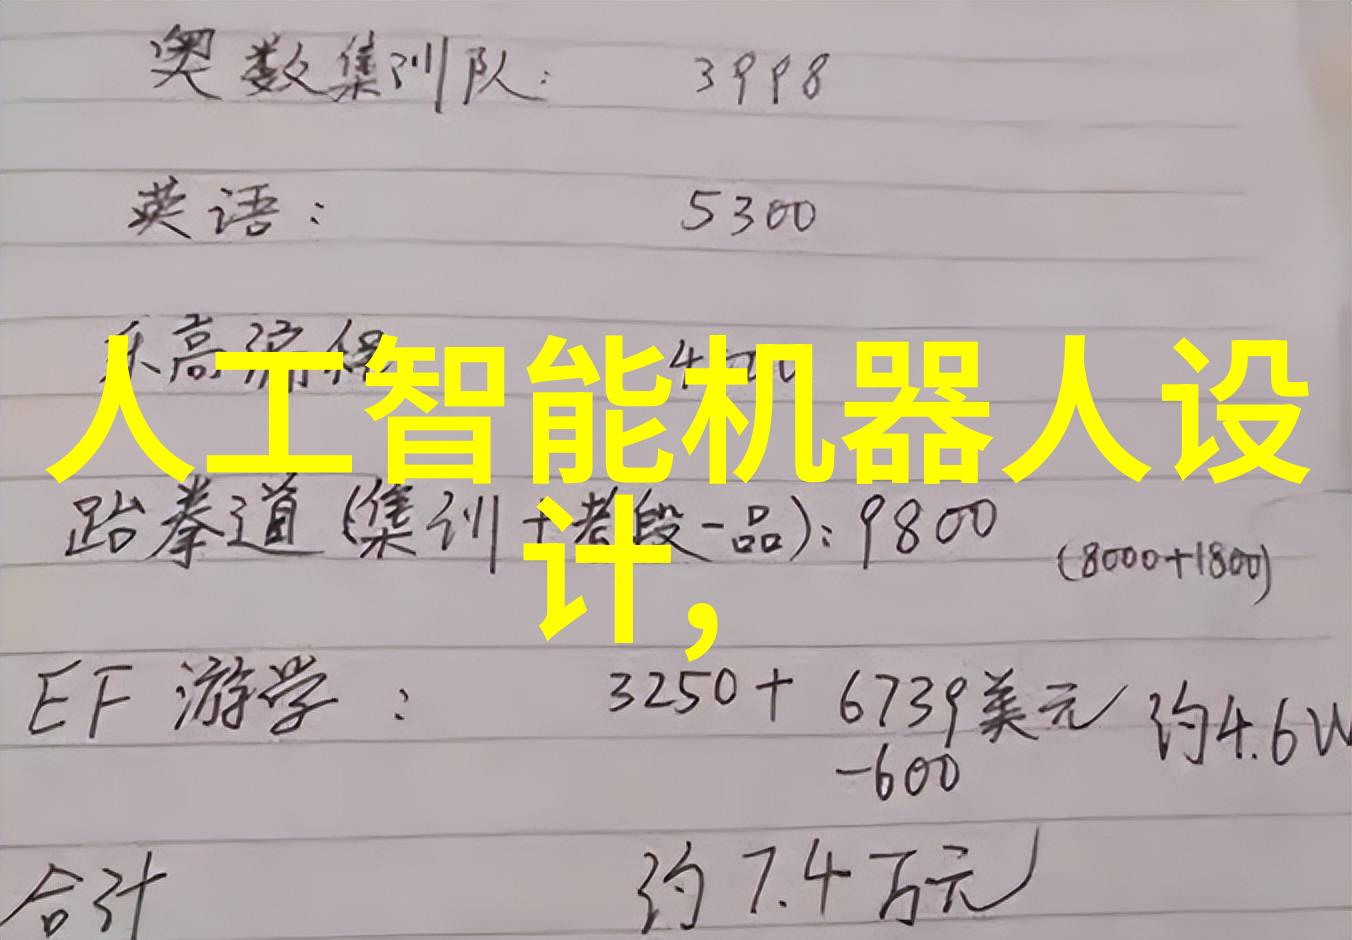 奥数集训队: 3998
英语: 5300
乐高编程
人工智能机器人设
跆拳道(集训+考段一品): 9800 (8000+1800)
计,
EF 游学: 3250+ 6739美元 约4.6W
-600
合计 约7.4万元